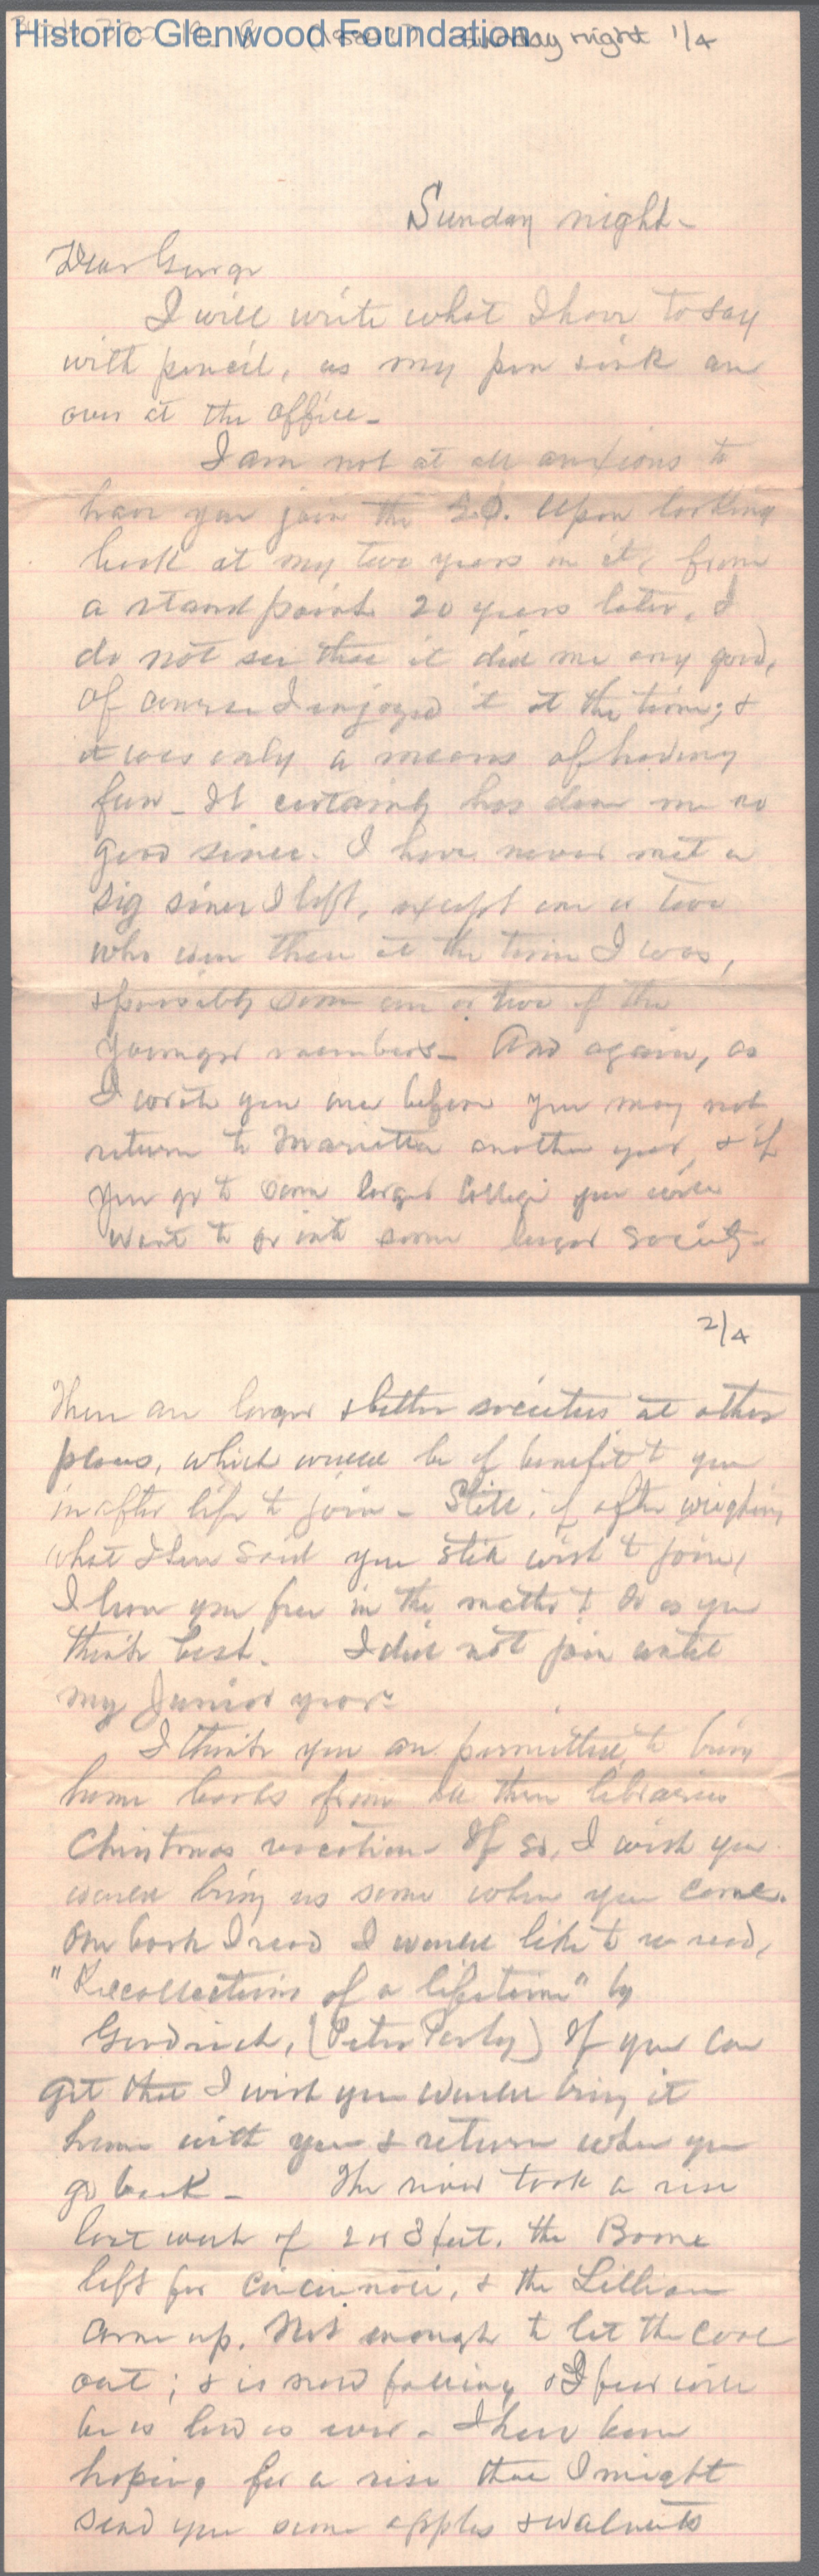 Historic Glenwood Foundation
Sunday night 1/4
Sunday night -
Dear George
I will write what I have to say
with pencil, as my pen & ink are
over at the office -
I am not at all anxious to
have you join the
Upon looking
back at my two years in it, from
a stand point 20 years later, I
do not see that it did me any good,
of course I enjoyed it at the time; &
it was only a means of having
fun - It certainly has done me no
good since. I have never met a
Sig since I left, except one or two
who were there at the time I was,
& possibly some one or two of the
younger members - And again, as
I wrote you once before you may not
return to Marietta another year, & if
you go to some larger College you will
want to go into some larger Society -
2/4
There are larger & better societies at other
places, which would be of benefit to you
in after life to join - Still, if after weighing
what I have said you still wish to join,
I leave you free in the matter to do as you
think best. I did not join until
my Junior year -
I think you are permitted to bring
home books from all three libraries
Christmas vacation - If so, I wish you
would bring us some when you come.
One book I read I would like to re read,
"Recollections of a lifetime" by
Goodrich, (Peter Parley) If you can
get that I wish you would bring it
home with you & return when you
go back - The river took a rise
last week of 2 or 3 feet. the Boone
left for Cincinnati, & the Lillian
came up. Not enough to let the coal
out; & is now falling & I fear will
be as low as ever - I have been
hoping for a rise that I might
send you some apples & walnuts